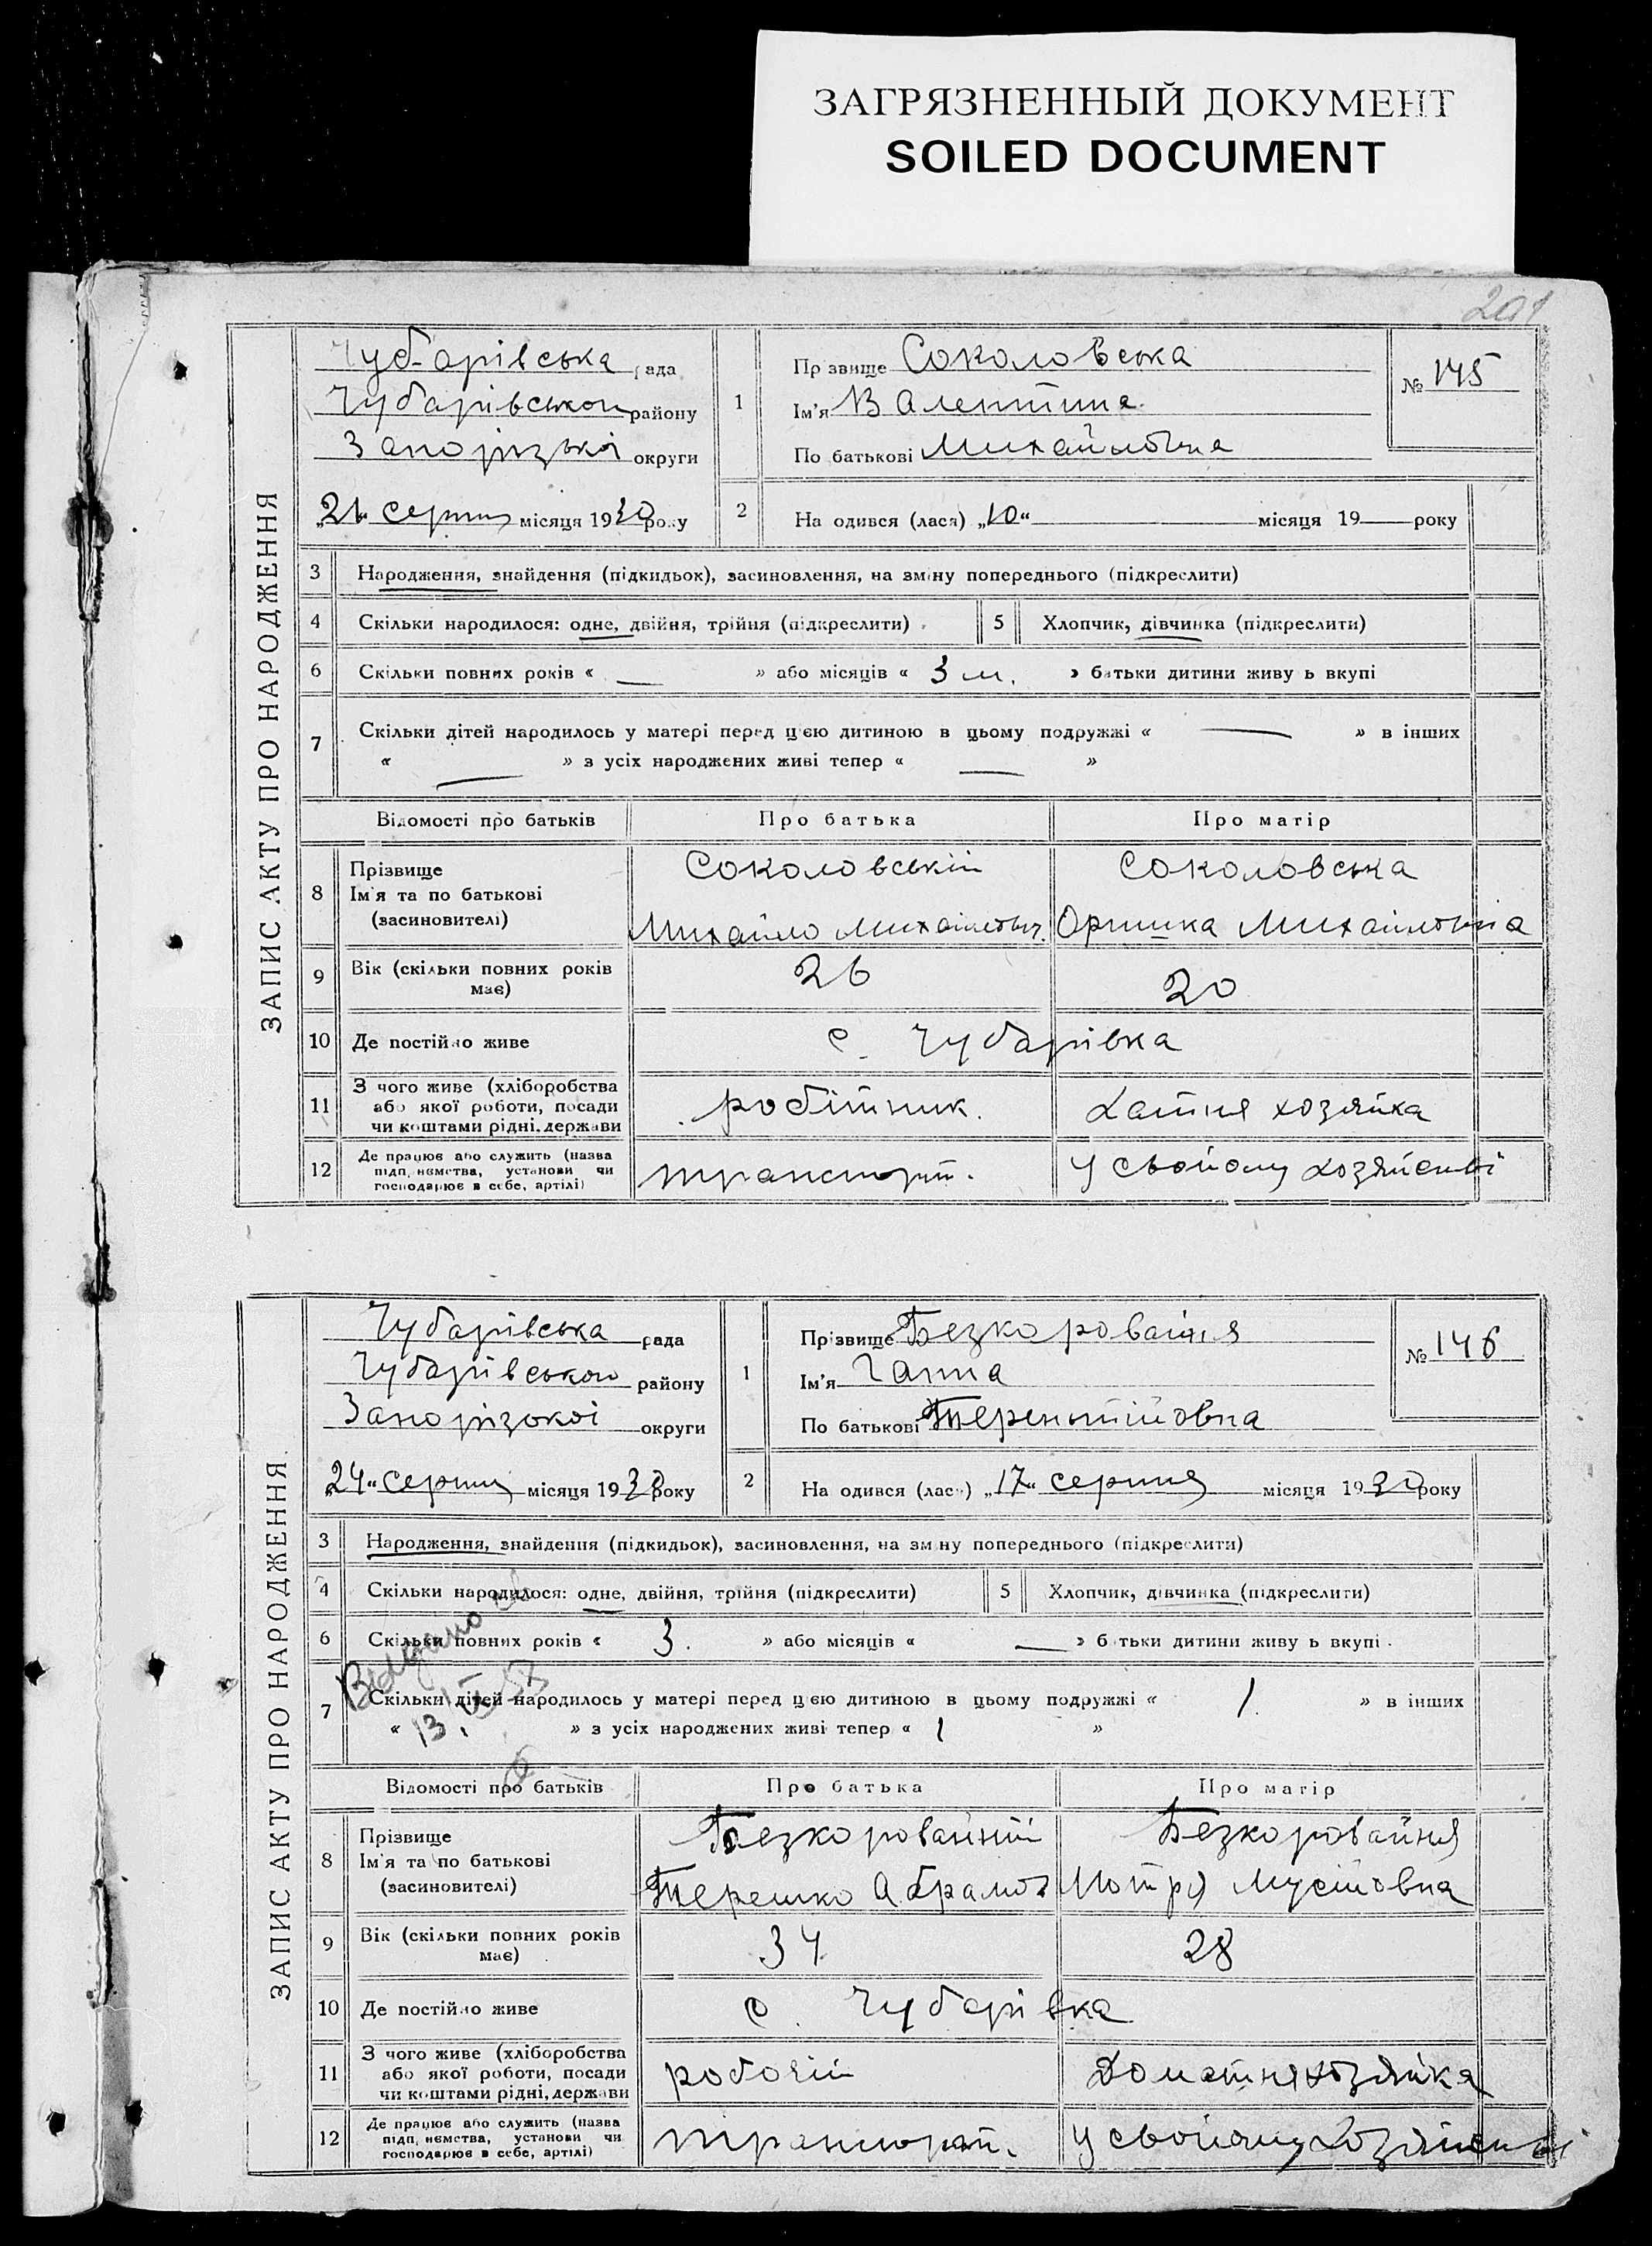 ЗАГРЯЗНЕННЫЙ ДОКУМЕНТ
SOILED DOCUMENT
201
ЗАПИС АКТУ ПРО НАРОДЖЕННЯ
Чубарівська рада
Чубарівського району
Запорізької округи
„21“ серпня місяця 1930 року
1
Прізвище Соколовська
Ім'я Валентина
По батькові Михайловна
№ 145
2
На одився (лася) „10“ місяця 19 року
3 Народження, знайдення (підкидьок), засиновлення, на зміну попереднього (підкреслити)
4 Скільки народилося: одне, двійня, трійня (підкреслити) 5 Хлопчик, дівчинка (підкреслити)
6 Скільки повних років « — » або місяців « 3 м. » батьки дитини живу ь вкупі
7 Скільки дітей народилось у матері перед цією дитиною в цьому подружжі « — » в інших
« — » з усіх народжених живі тепер « — »
Відомості про батьків Про батька Про матір
8 Прізвище Ім'я та по батькові (засиновителі)
Соколовській Соколовська
Михайло Михайлович. Оришка Михайловна
9 Вік (скільки повних років має) 26 20
10 Де постійно живе с. Чубарівка
11 З чого живе (хліборобства або якої роботи, посади чи коштами рідні, держави робітник. хатня хозяйка
12 Де працює або служить (назва підприємства, установи чи господарює в себе, артілі) транспорт. у свойому хозяйстві
ЗАПИС АКТУ ПРО НАРОДЖЕННЯ
Чубарівська рада
Чубарівского району
Запорізкоі округи
„24“ серпня місяця 1930 року
1
Прізвище Безкоровайня
Ім'я Ганна
По батькові Терентийовна
№ 146
2
На одився (лась) „17“ серпня місяця 1930 року
3 Народження, знайдення (підкидьок), засиновлення, на зміну попереднього (підкреслити)
4 Скільки народилося: одне, двійня, трійня (підкреслити) 5 Хлопчик, дівчинка (підкреслити)
6 Скільки повних років « 3. » або місяців « — » батьки дитини живу ь вкупі
Видано
13. IX 57
7 Скільки дітей народилось у матері перед цією дитиною в цьому подружжі « 1. » в інших
« » з усіх народжених живі тепер « 1 »
Відомості про батьків Про батька Про матір
8 Прізвище Ім'я та по батькові (засиновителі)
Безкоровайній Безкоровайня
Терешко Абрамов Мотря Мусійовна
9 Вік (скільки повних років має) 34 28
10 Де постійно живе с. Чубарівка
11 З чого живе (хліборобства або якої роботи, посади чи коштами рідні, держави робочій Доматня хозяйка
12 Де працює або служить (назва підприємства, установи чи господарює в себе, артілі) транспорт. у свойому хозяйстві